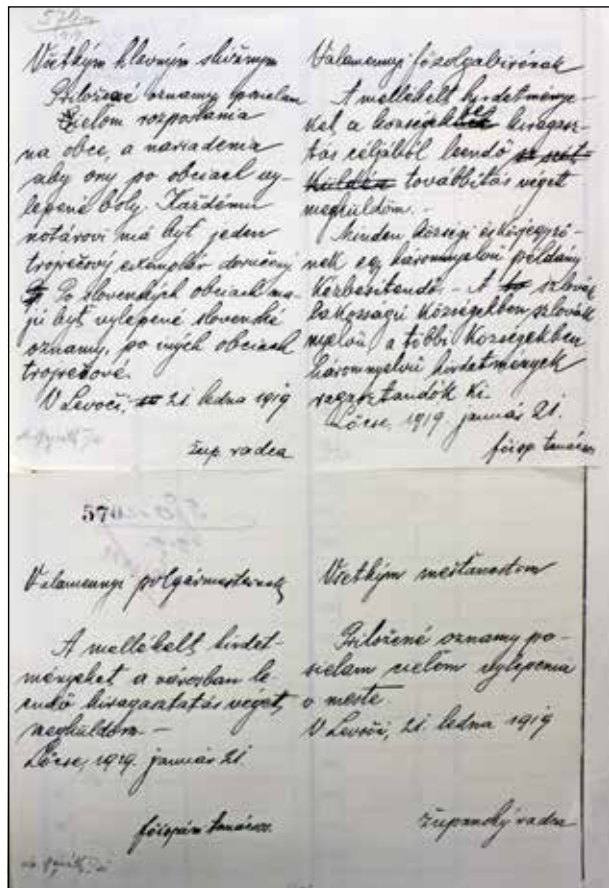 570
1919
Všetkým hlavným slúžnym
Priložené oznamy zposielam
cielom rozposlania
na obce, a nariadenia
aby ony po obciach vy-
lepené boly. Každému
notárovi má byť jeden
trojrečový exemplár doručený
Po slovenských obciach ma-
jú byť vylepené slovenské
oznamy, po iných obciach
trojrečove.
V Levoči, 21 ledna 1919
žup. radca
Valamennyi főszolgabirónak
A mellékelt hirdetménye-
ket a községekben kiragasz-
tás céljából leendő szét-
küldés továbbitás végett
megküldöm. -
Minden községi és körjegyző-
nek egy háromnyelvű példány
kézbesitendő. - A szlovák
lakosságu községekben szlovák
nyelvű, a többi községekben
háromnyelvű hirdetmények
ragasztandók ki.
Lőcse, 1919 január 21.
főisp tanácsos
570
Valamennyi polgármesternek
A mellékelt hirdet-
ményeket a városban le
endő kiragasztatás végett
megküldöm -
Lőcse, 1919. január 21.
főispán tanácsos.
Všetkým mešťanostom
Priložené oznamy po-
sielam cielom vylepenia
v meste.
V Levoči, 21. ledna 1919
županský radca